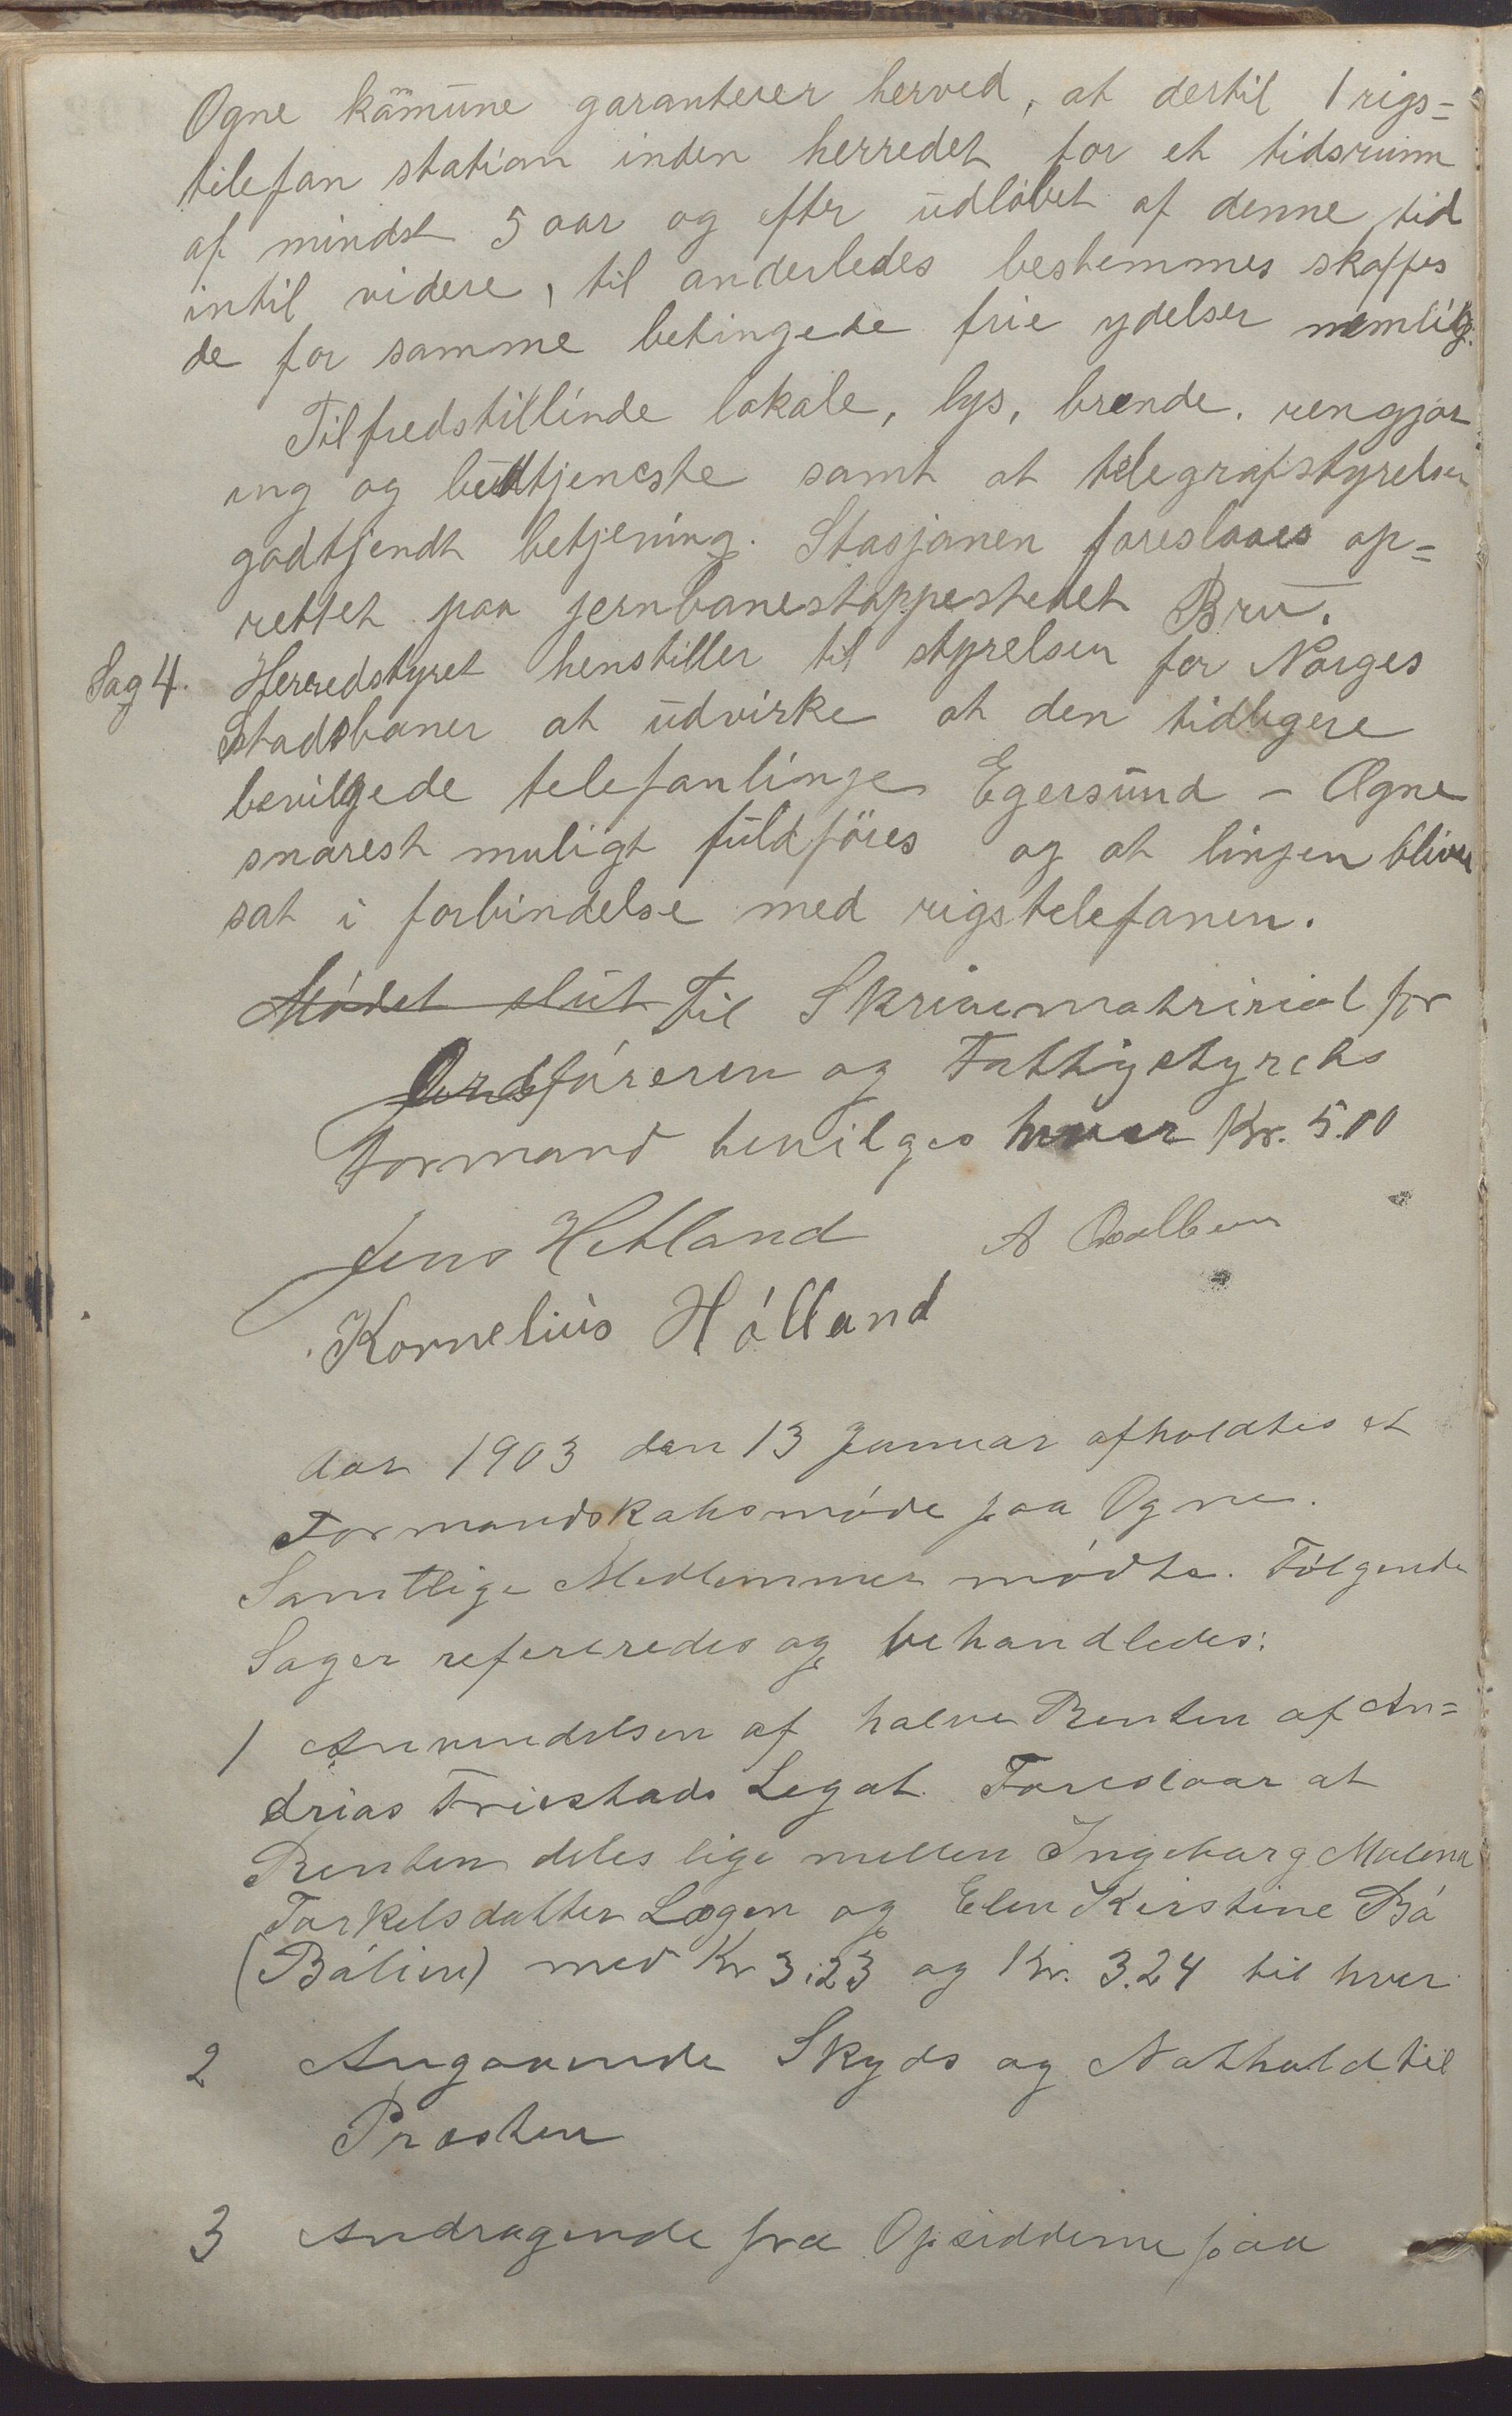 Ogne kommune garanterer herved, at dertil 1 rigs=
tilefon station inden herredet for et tidsrum
af mindst 5 aar og efter udløbet af denne tid
intil videre, til anderledes bestemmes skaffes
de for samme betingede frie ydelser nemlig.
Tilfredstillinde lokale, lys, brende, rengjør
ing og budtjeneste samt at telegrafstyrelsen
godtjendt betjening. Stasjonen foreslaaes op=
rettet paa jernbanestoppestedet Bru.
Sag 4. Herredstyret henstiller til styrelsen for Norges
Stadsbaner at udvirke at den tidligere
bevilgede telefonlinje Egersund – Ogne
snarest muligt fuldföres og at linjen bliver
sat i forbindelse med rigstelefonen.
Mødet slut Til Skrivematririal for
Ordføreren og Fattigstyrets
Formand bevilges hver Kr. 5.00
Jens Hetland A
Kornelius Hólland
Aar 1903 den 13 Januar afholdtes et
Formandskabsmóde paa Ogne.
Samtlige Medlemmer mødte. Følgende
Sager refereredes og behandledes:
1 Anvendelsen af halve Renten af An=
drias Friestads Legat. Foreslaar at
Renten deles lige mellem Ingeborg Malena
Torkelsdatter Logen og Elen Kirstine Bó
(Bólien) med Kr 3.23 og Kr. 3.24 til hver
2 Angaaende Skyds og Nathold til
Præsten
3 Andragende fra Opsidderne paa